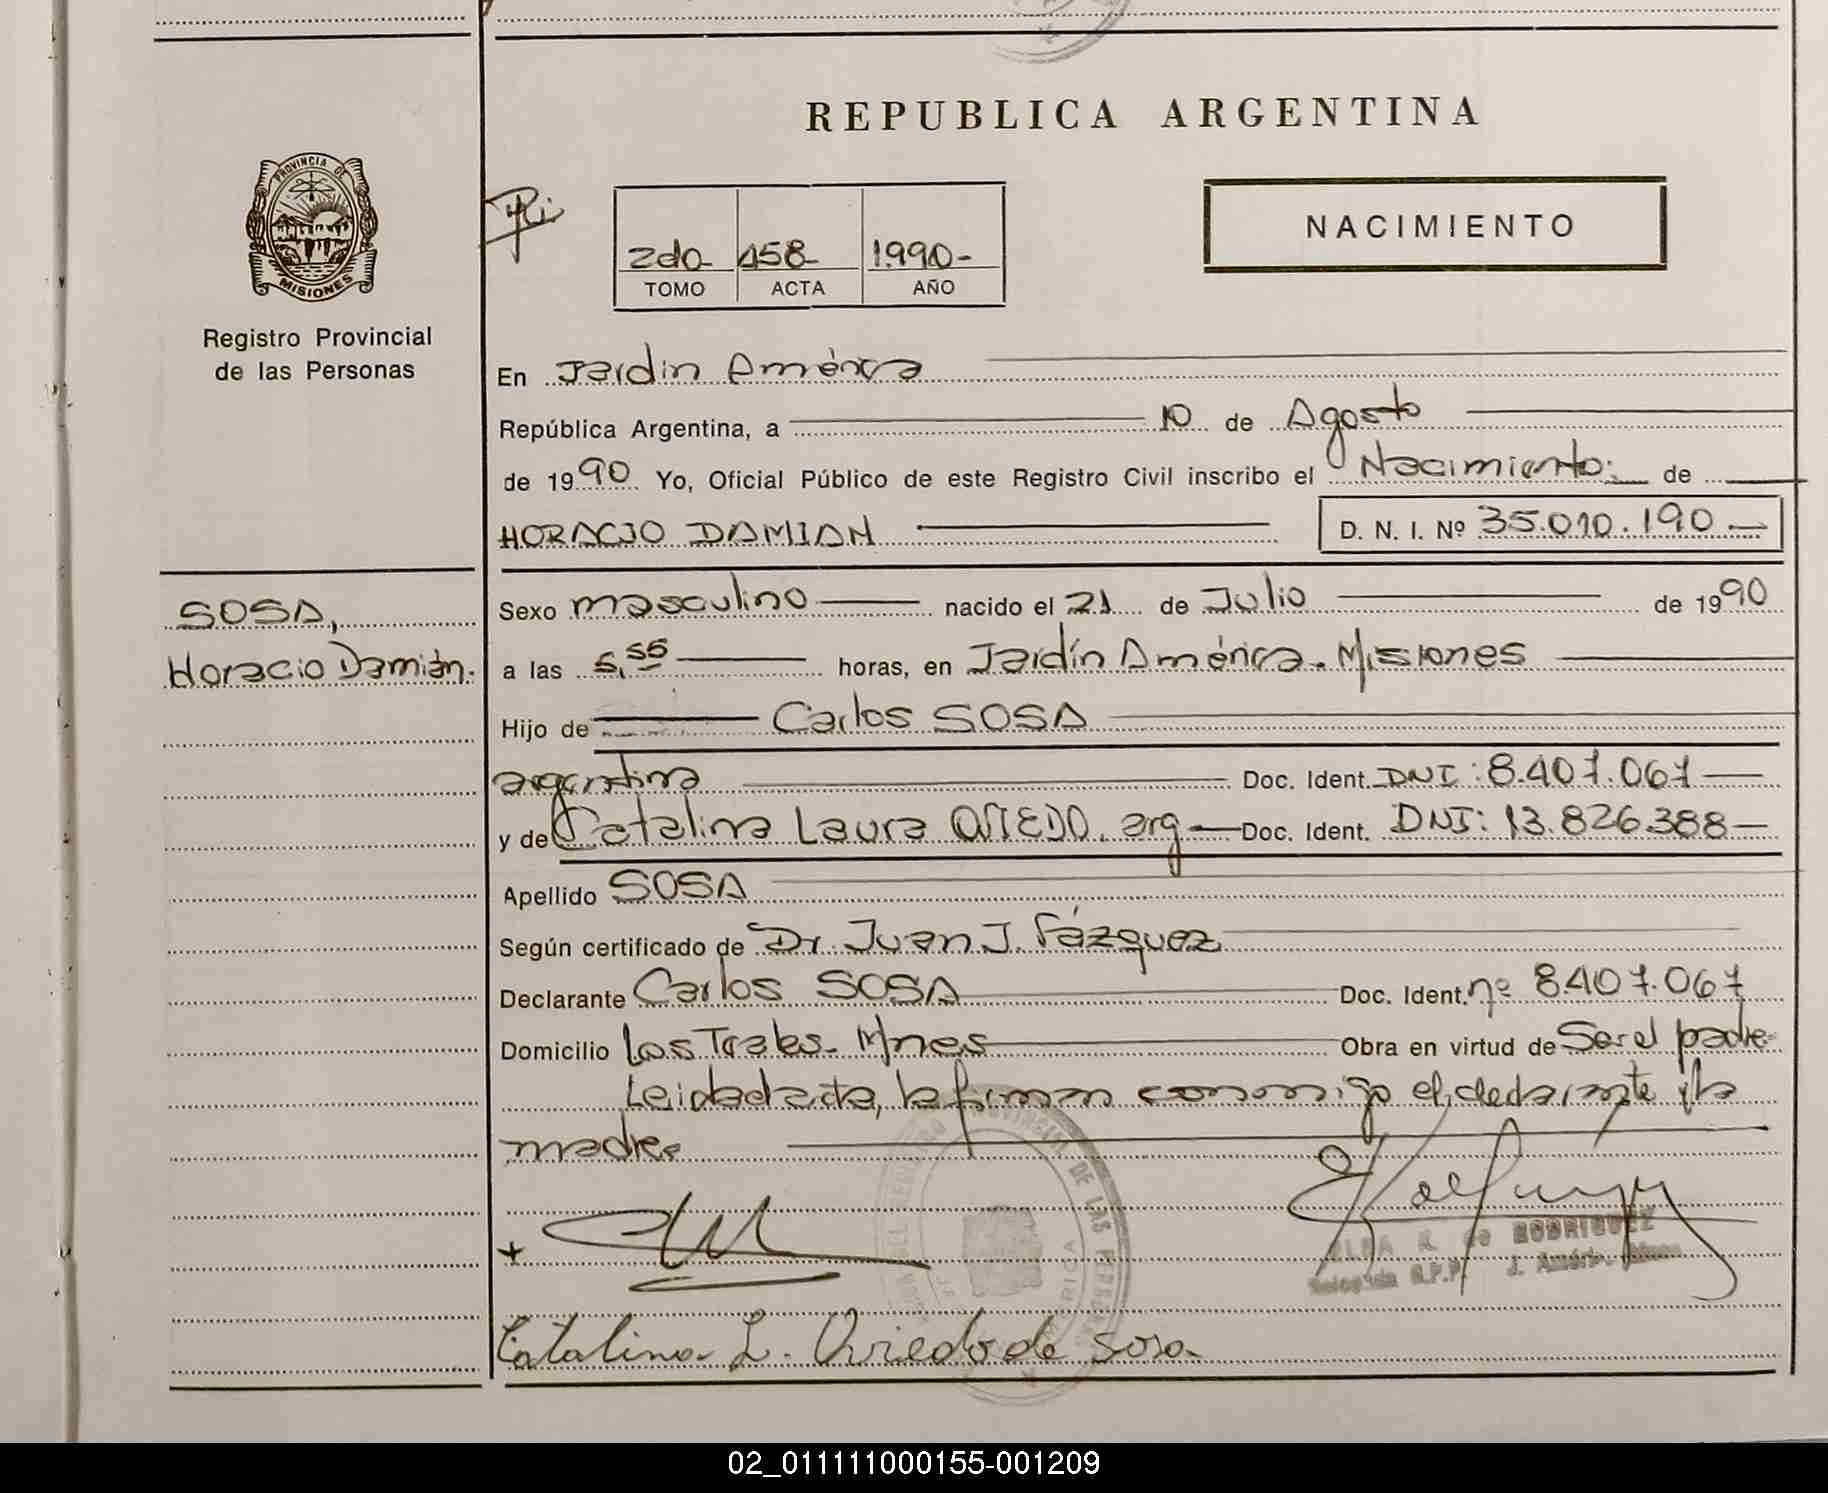 REPUBLICA ARGENTINA
PROVINCIA DE
MISIONES
Registro Provincial
de las Personas
2do- 458- 1.990-
TOMO ACTA AÑO
NACIMIENTO
En Jardín América
República Argentina, a 10 de Agosto
de 1990 Yo, Oficial Público de este Registro Civil inscribo el Nacimiento: de
HORACIO DAMIAN D. N. I. Nº 35.010.190
SOSA,
Horacio Damián.
Sexo masculino nacido el 21 de Julio de 1990
a las 5,55 horas, en Jardín América. Misiones
Hijo de Carlos SOSA
argentina Doc. Ident. DNI: 8.407.067
y de Catalina Laura OVIEDO. arg Doc. Ident. DNI: 13.826.388
Apellido SOSA
Según certificado de Dr. Juan J. Vázquez
Declarante Carlos SOSA Doc. Ident. nº 8.407.067
Domicilio Los Teales. Mnes Obra en virtud de Ser el padre
Leida el acta, la firman conmigo el declarante y la
madre
ELBA R. de RODRIGUEZ
Delegada R.P.P. J. América
Catalina L. Oviedo de Sosa
02_011111000155-001209